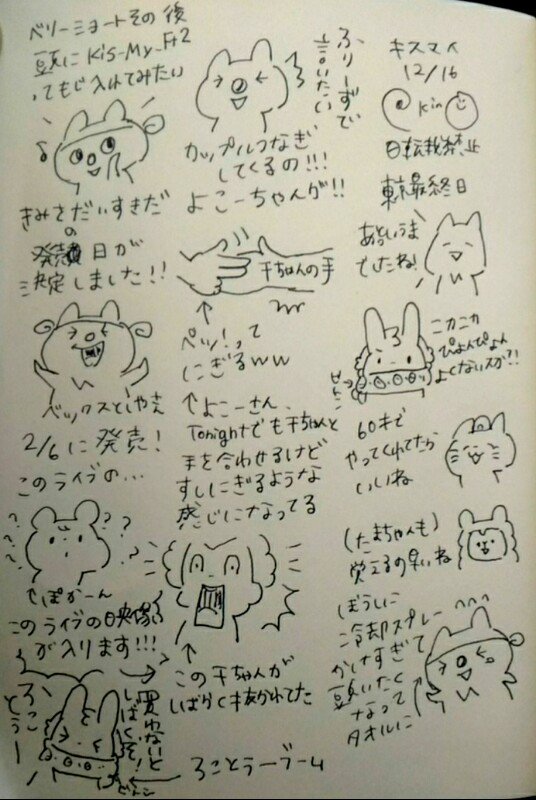 キスマイ
12/16
Kis
回転裁禁止
東京最終日
あっというま
でしたね!
ニカニカ
ぴょんぴょん
よくないスか?!
60才で
やってくれてたら
いいね
(たまちゃんも)
覚えるの早いね
ぼうしに
冷却スプレー
かけすぎて
頭いたく
なって
タオルに
ふりーずで
言いたい
カップルつなぎ
してくるの!!!
よこーちゃんが!!
千ちゃんの手
ペッ!って
にぎるww
↑よこーさん、
Tonightでも千ちゃんと
手を合わせるけど
すしにぎるような
感じになってる
この千ちゃんが
しばらく抜かれてた
ベリーショートその後
頭に Kis-My-Ft2
ってもじ入れてみたい
♪
きみさだいすきだ
の
発売日が
決定しました!!
ベックスとしゃえ
2/6に発売!
このライブの…
???
??
↑ぽかーん
このライブの映像が
が入ります!!!
買わないと
しばくぞ!
ろこ
どうー
ろことうーブーム